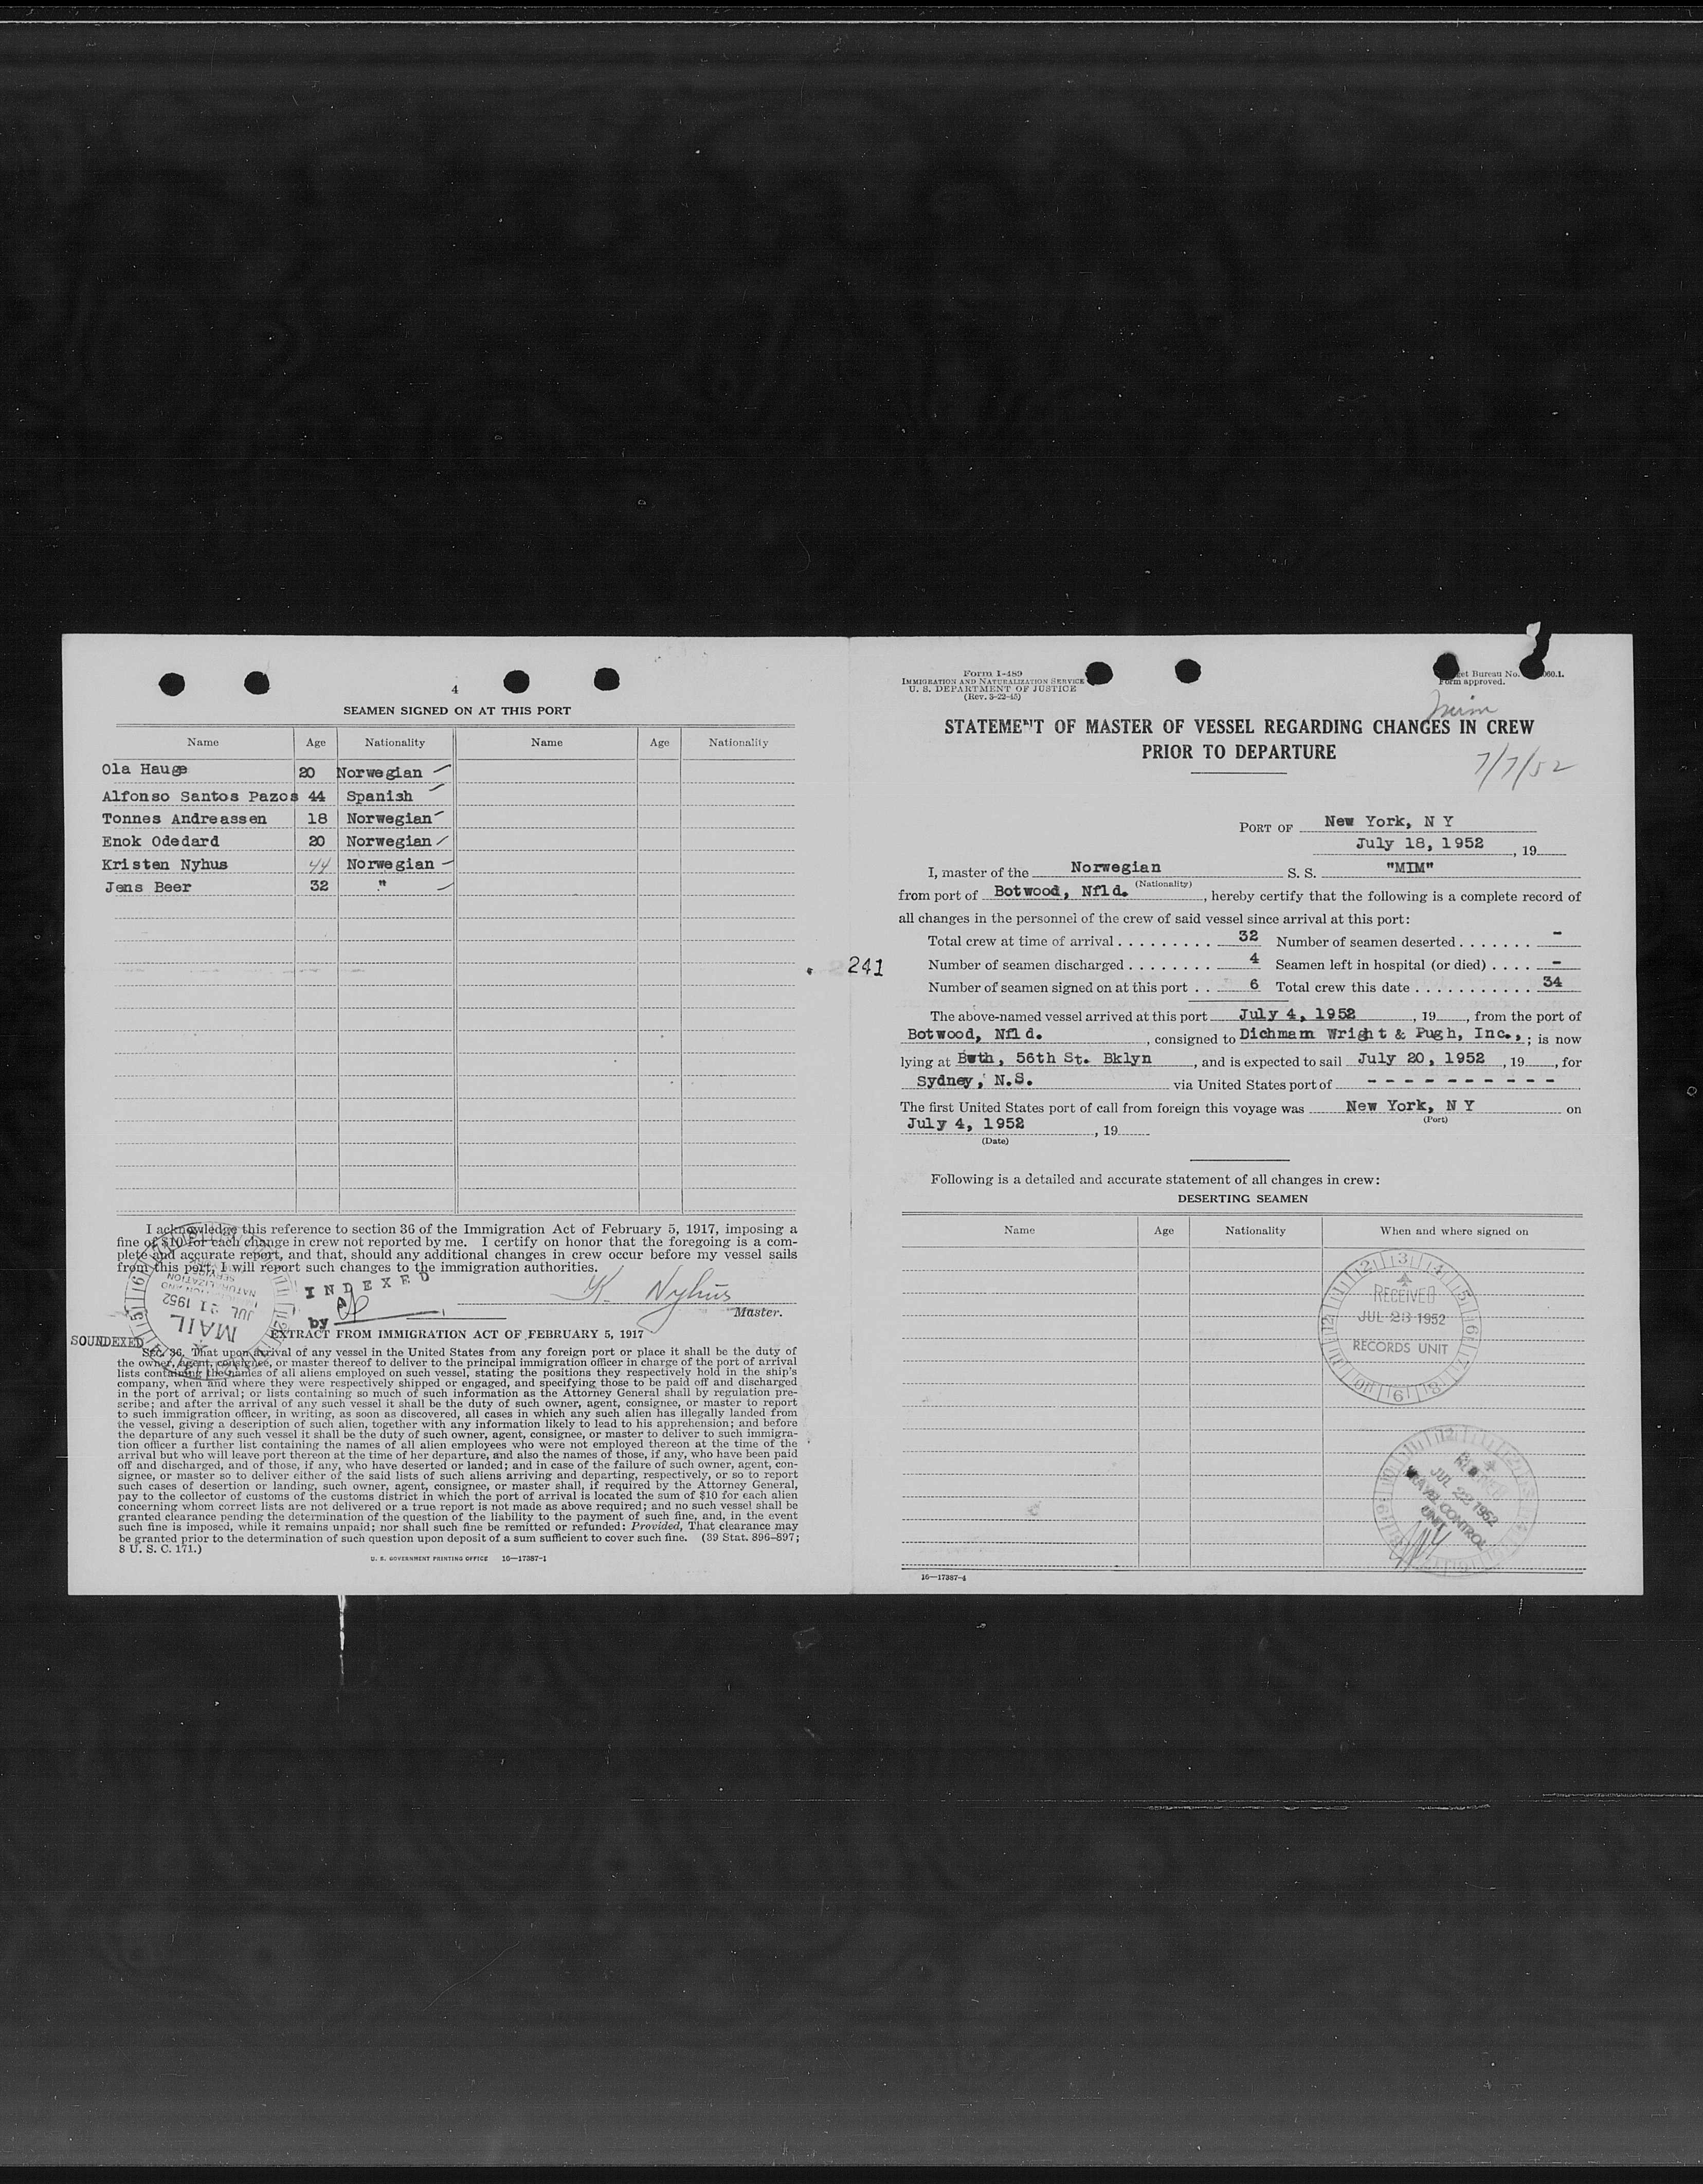 4
SEAMEN SIGNED ON AT THIS PORT
Name Age Nationality Name Age Nationality
Ola Hauge 20 Norwegian
Alfonso Santos Pazos 44 Spanish
Tonnes Andreassen 18 Norwegian
Enok Odedard 20 Norwegian
Kristen Nyhus 44 Norwegian
Jens Beer 32 "
I acknowledge this reference to section 36 of the Immigration Act of February 5, 1917, imposing a
fine of $10 for each change in crew not reported by me. I certify on honor that the foregoing is a com-
plete and accurate report, and that, should any additional changes in crew occur before my vessel sails
from this port, I will report such changes to the immigration authorities.
INDEXED
by
K. Nyhus
Master.
MAIL
JUL 21 1952
SOUNDEXED
EXTRACT FROM IMMIGRATION ACT OF FEBRUARY 5, 1917
SEC. 36. That upon arrival of any vessel in the United States from any foreign port or place it shall be the duty of
the owner, agent, consignee, or master thereof to deliver to the principal immigration officer in charge of the port of arrival
lists containing the names of all aliens employed on such vessel, stating the positions they respectively hold in the ship's
company, when and where they were respectively shipped or engaged, and specifying those to be paid off and discharged
in the port of arrival; or lists containing so much of such information as the Attorney General shall by regulation pre-
scribe; and after the arrival of any such vessel it shall be the duty of such owner, agent, consignee, or master to report
to such immigration officer, in writing, as soon as discovered, all cases in which any such alien has illegally landed from
the vessel, giving a description of such alien, together with any information likely to lead to his apprehension; and before
the departure of any such vessel it shall be the duty of such owner, agent, consignee, or master to deliver to such immigra-
tion officer a further list containing the names of all alien employees who were not employed thereon at the time of the
arrival but who will leave port thereon at the time of her departure, and also the names of those, if any, who have been paid
off and discharged, and of those, if any, who have deserted or landed; and in case of the failure of such owner, agent, con-
signee, or master so to deliver either of the said lists of such aliens arriving and departing, respectively, or so to report
such cases of desertion or landing, such owner, agent, consignee, or master shall, if required by the Attorney General,
pay to the collector of customs of the customs district in which the port of arrival is located the sum of $10 for each alien
concerning whom correct lists are not delivered or a true report is not made as above required; and no such vessel shall be
granted clearance pending the determination of the question of the liability to the payment of such fine, and, in the event
such fine is imposed, while it remains unpaid; nor shall such fine be remitted or refunded: Provided, That clearance may
be granted prior to the determination of such question upon deposit of a sum sufficient to cover such fine. (39 Stat. 896–897;
8 U. S. C. 171.)
U. S. GOVERNMENT PRINTING OFFICE 16—17387-1
241
Form I-489
IMMIGRATION AND NATURALIZATION SERVICE
U. S. DEPARTMENT OF JUSTICE
(Rev. 8-22-45)
Bureau No.
Form approved.
Mim
STATEMENT OF MASTER OF VESSEL REGARDING CHANGES IN CREW
PRIOR TO DEPARTURE
7/7/52
PORT OF New York, N Y
July 18, 1952, 19
I, master of the Norwegian S. S. "MIM"
(Nationality)
from port of Botwood, Nfld., hereby certify that the following is a complete record of
all changes in the personnel of the crew of said vessel since arrival at this port:
Total crew at time of arrival 32 Number of seamen deserted -
Number of seamen discharged 4 Seamen left in hospital (or died) -
Number of seamen signed on at this port 6 Total crew this date 34
The above-named vessel arrived at this port July 4, 1952, 19, from the port of
Botwood, Nfld., consigned to Dichmam Wright & Pugh, Inc.,; is now
lying at Bwth, 56th St. Bklyn, and is expected to sail July 20, 1952, 19, for
Sydney, N.S. via United States port of - - - - - - - - - -
The first United States port of call from foreign this voyage was New York, N Y on
(Port)
July 4, 1952, 19
(Date)
Following is a detailed and accurate statement of all changes in crew:
DESERTING SEAMEN
Name Age Nationality When and where signed on
RECEIVED
JUL 23 1952
RECORDS UNIT
JUL 22 1952
TRAVEL CONTROL
UNIT
16—17387-4